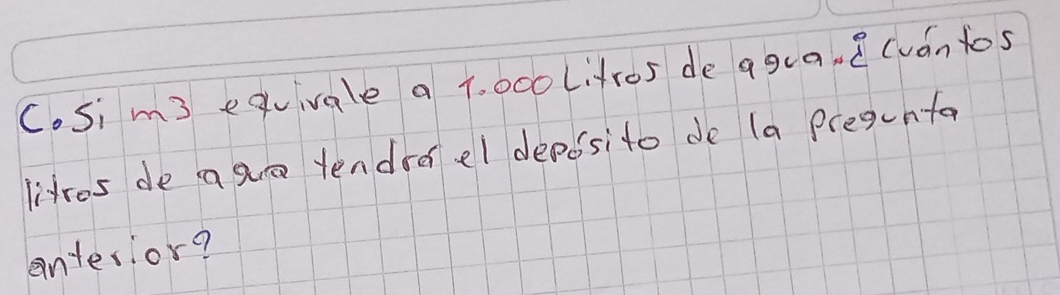 C. Si m3 equivale a 1.000 Litros de agua. ¿ cuántos
litros de agua tendrá el depósito de la pregunta
anterior?